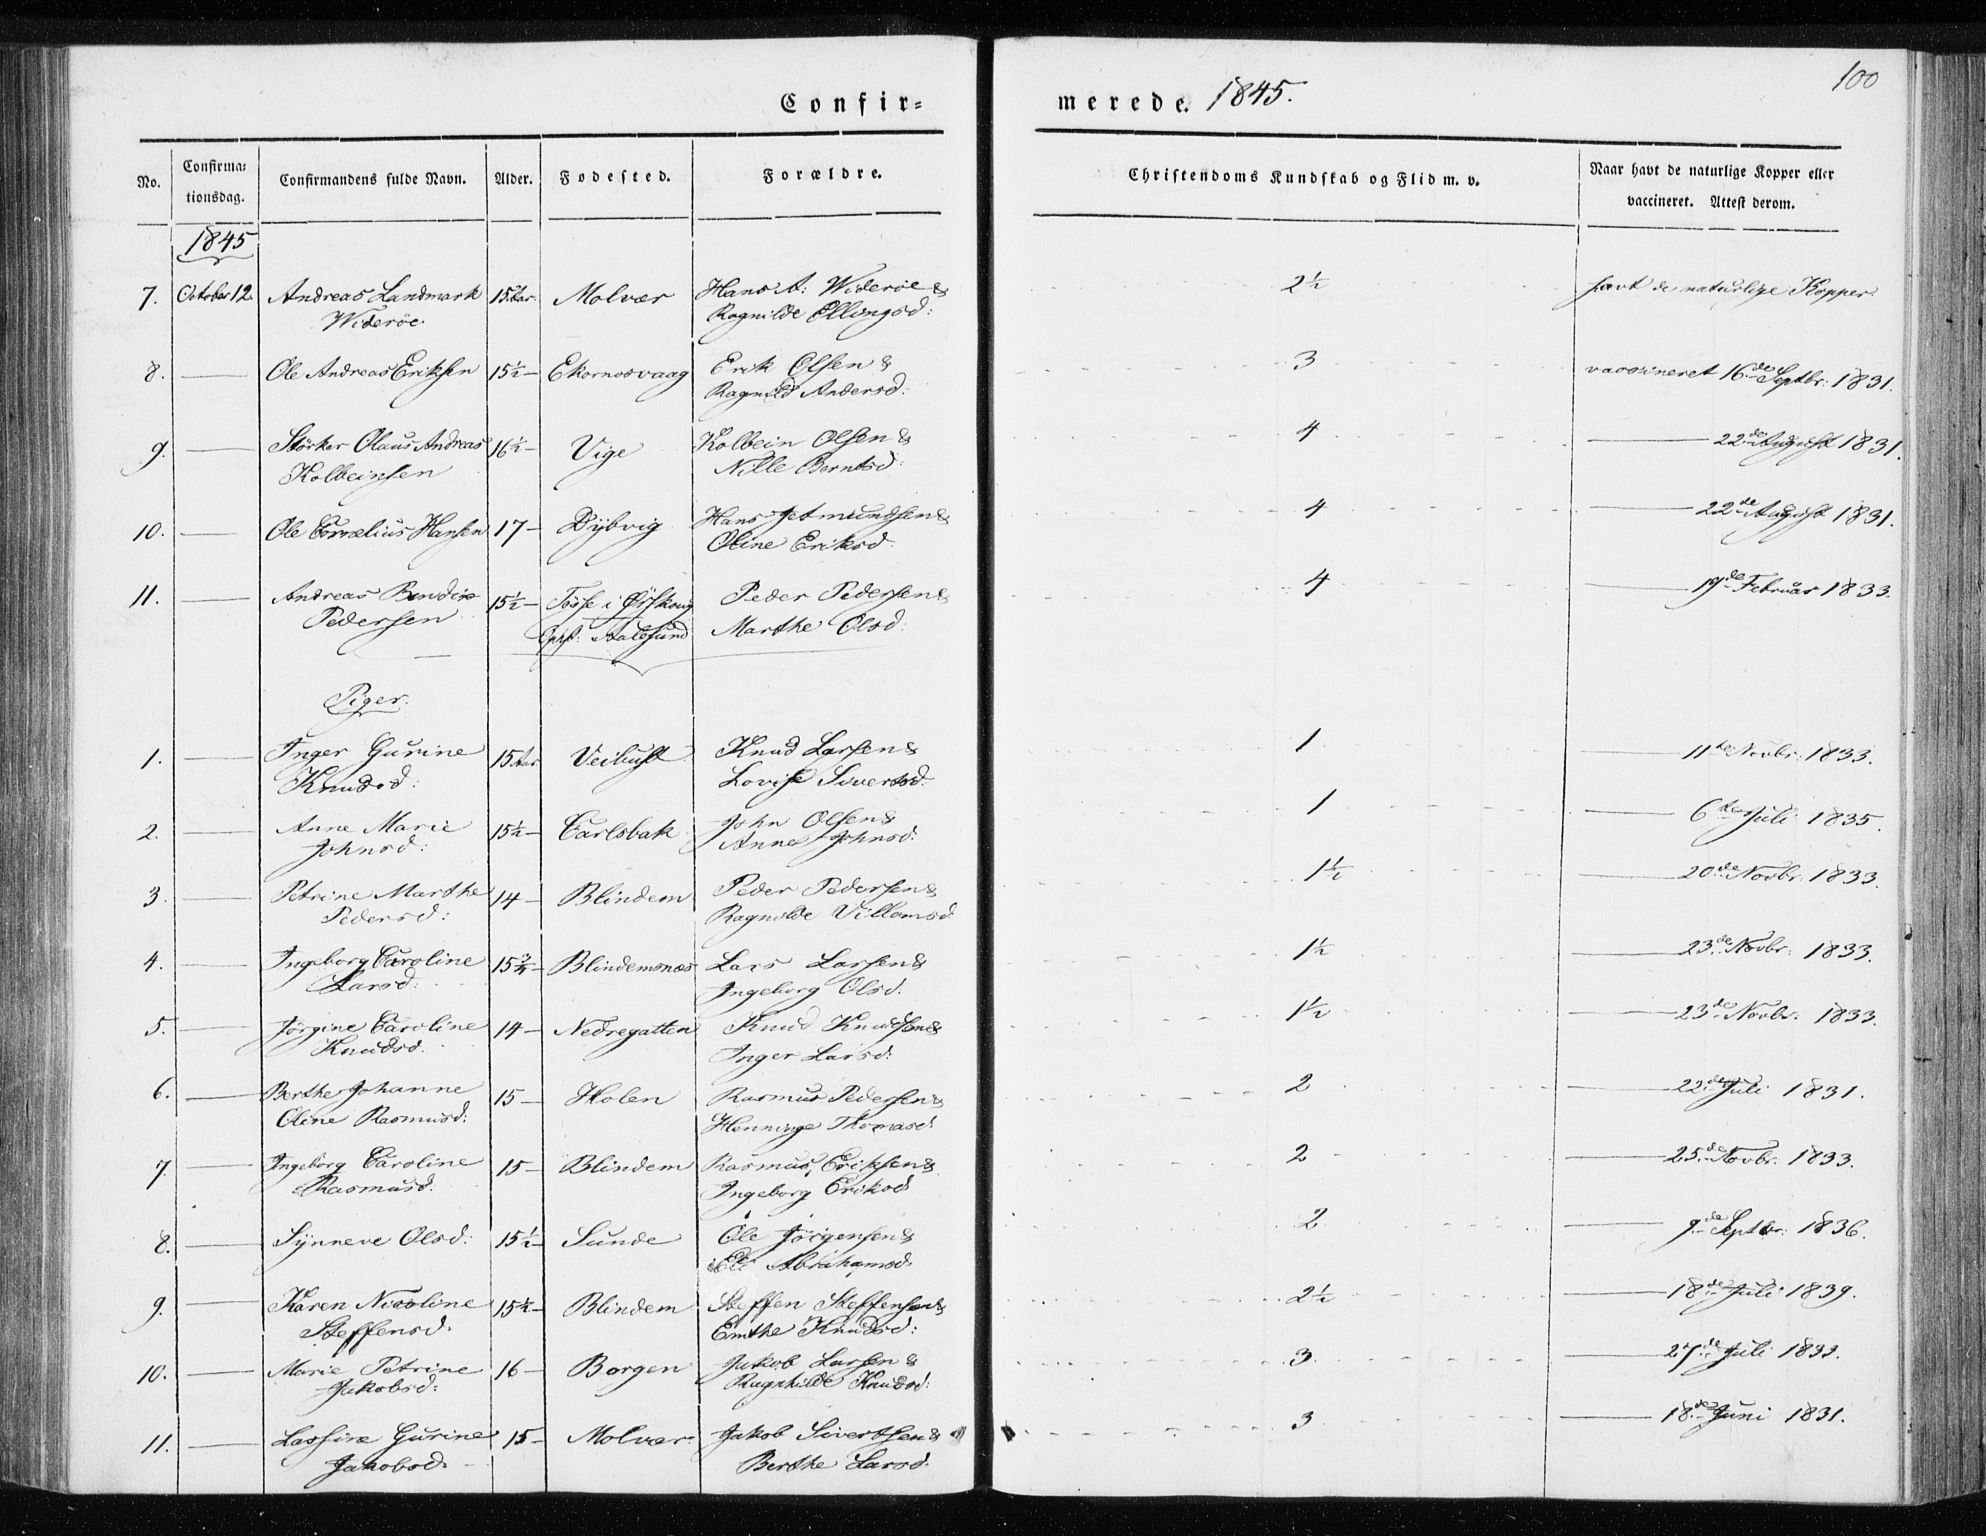 100
Confir=
merede. 1845.
No.
Confirma=
tionsdag.
Confirmandens fulde Navn.
Alder.
Fødested.
Forældre.
Christendoms Kundskab og Flid m. v.
Naar havt de naturlige Kopper eller
vaccineret. Attest derom.
1845
7. October 12. Andreas Landmark 15 Aar. Molvær Hans A: Widerøe & 2½ havt de naturlige Kopper.
Widerøe. Ragnilde Ellingsd:
8. — Ole Andreas Eriksen 15½ — Ekornosvaag Erik Olsen & 3 vaccineret 16de Septbr: 1831.
Ragnild Andersd:
9. — Störker Olaus Andreas 16½ — Vige Kolbein Olsen & 4 — 22de August 1831.
Kolbeinsen Nille Berntsd:
10. — Ole Cornelius Hansen 17 — Dybvig Hans Jetmundsen & 4 — 22de August 1831.
Oline Eriksd:
11. — Andreas 15½ — Tösse i Ørskoug Peder Pedersen & 4 — 19de Februar 1833.
Pedersen Aalesund Marthe Olsd:
Piger.
1. — Inger Gurine 15 Aar Veibust Knud Larsen & 1 — 11te Novbr: 1833.
Knudsd: Lovise Sivertsd:
2. — Anne Marie 15½ — Carlsbak John Olsen & 1 — 6te Juli 1835.
Johnsd: Anne Johnsd:
3. — Petrine Marthe 14 — Blindem Peder Pedersen & 1½ — 20de Novbr. 1833.
Pedersd: Ragnilde Villomsd
4. — Ingeborg Caroline 15¾ — Blindemsnæs Lars Larsen & 1½ — 23de Novbr: 1833.
Larsd: Ingeborg Olsd:
5. — Jørgine Caroline 14 — Nedregatten Knud Knudsen & 1½ — 23de Novbr. 1833.
Knudsd. Inger Larsd:
6. — Berthe Johanne 15 — Holen Rasmus Pedersen & 2 — 22de Juli 1831.
Oline Rasmusd: Henninge Thomasd:
7. — Ingeborg Caroline 15 — Blindem Rasmus Eriksen & 2 — 25de Novbr. 1833.
Rasmusd. Ingeborg Eriksd
8. — Synneve Olsd: 15½ — Sunde Ole Jörgensen & 2 — 9de Septbr: 1836.
Eli Abrahamsd
9. — Karen Nicoline 15½ — Blindem Steffen Steffensen & 2½ — 18de Juli 1839.
Steffensd. Emthe Knudsd:
10. — Marie Petrine 16 — Borgen Jakob Larsen & 3 — 27de Juli 1833.
Jakobsd: Ragnhilde Knudsd:
11. — Lassine Gurine 15 — Molvær Jakob Sivertsen & 3 — 18de Juni 1831.
Jakobsd: Berthe Larsd.